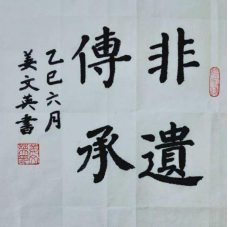 非遺
傳承
乙巳六月
姜文英書